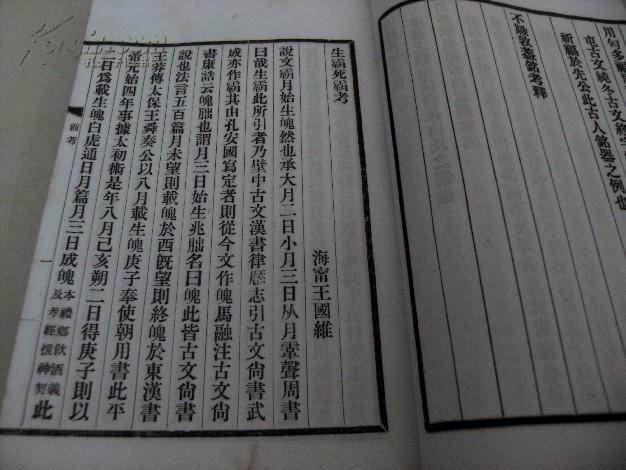 用句多
市上古文純冬古文終字
祈願於先公此古人銘器之例也
不𡢁敦蓋銘考釋
生霸死霸考
海甯王國維
說文霸月始生魄然也承大月二日小月三日从月䨣聲周書
曰哉生霸此所引者乃壁中古文漢書律歷志引古文尙書武
成亦作霸其由孔安國寫定者則從今文作魄馬融注古文尙
書康誥云魄朏也謂月三日始生兆朏名曰魄此皆古文尙書
說也法言五百篇月未望則載魄於西旣望則終魄於東漢書
王莽傳太保王舜奏公以八月載生魄庚子奉使朝用書此平
帝元始四年事據太初術是年八月己亥朔二日得庚子則以
二日爲載生魄白虎通日月篇月三日成魄本禮鄉飮酒義及孝經援神契此
霸考
一